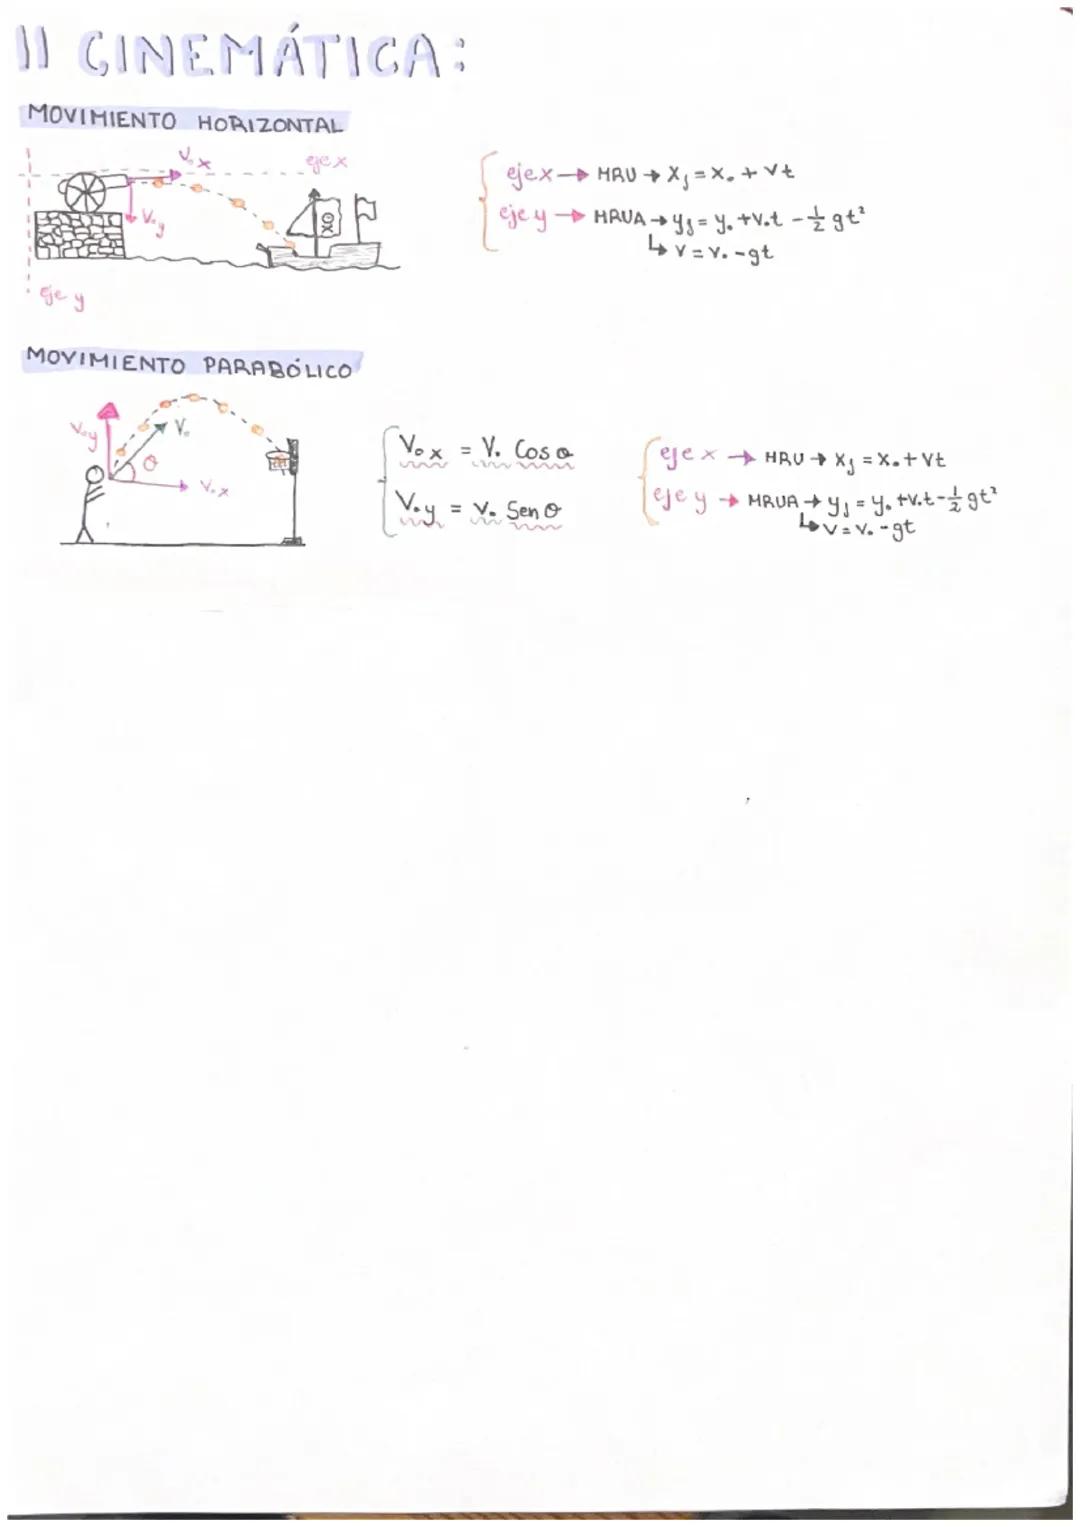 II CINEMÁTICA:
MOVIMIENTO HORIZONTAL
V₀x
eje x
V₀y
eje y
eje x → MRU → Xf = X₀ + Vt
eje y → MRUA → yf = y₀ + V₀t - 1/2 gt²
↳ V = V₀ - gt
MOVIMIENTO PARABÓLICO
V₀y
V₀
θ
V₀x
V₀x = V₀ Cos θ
V₀y = V₀ Sen θ
eje x → MRU → Xf = X₀ + Vt
eje y → MRUA → yf = y₀ + V₀t - 1/2 gt²
↳ V = V₀ - gt